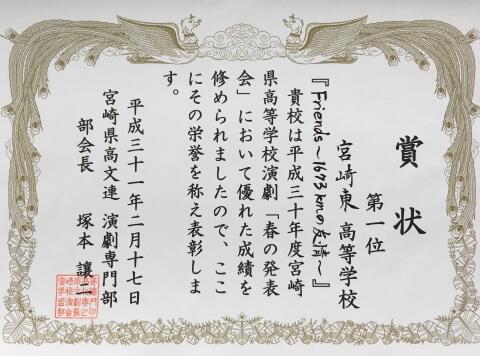 賞状
第一位
宮崎東高等学校
『Friends～1673kmの友情～』
貴校は平成三十年度宮崎
県高等学校演劇「春の発表
会」において優れた成績を
修められましたので、ここ
にその栄誉を称え表彰しま
す。
平成三十一年二月十七日
宮崎県高文連 演劇専門部
部会長 塚本 譲二